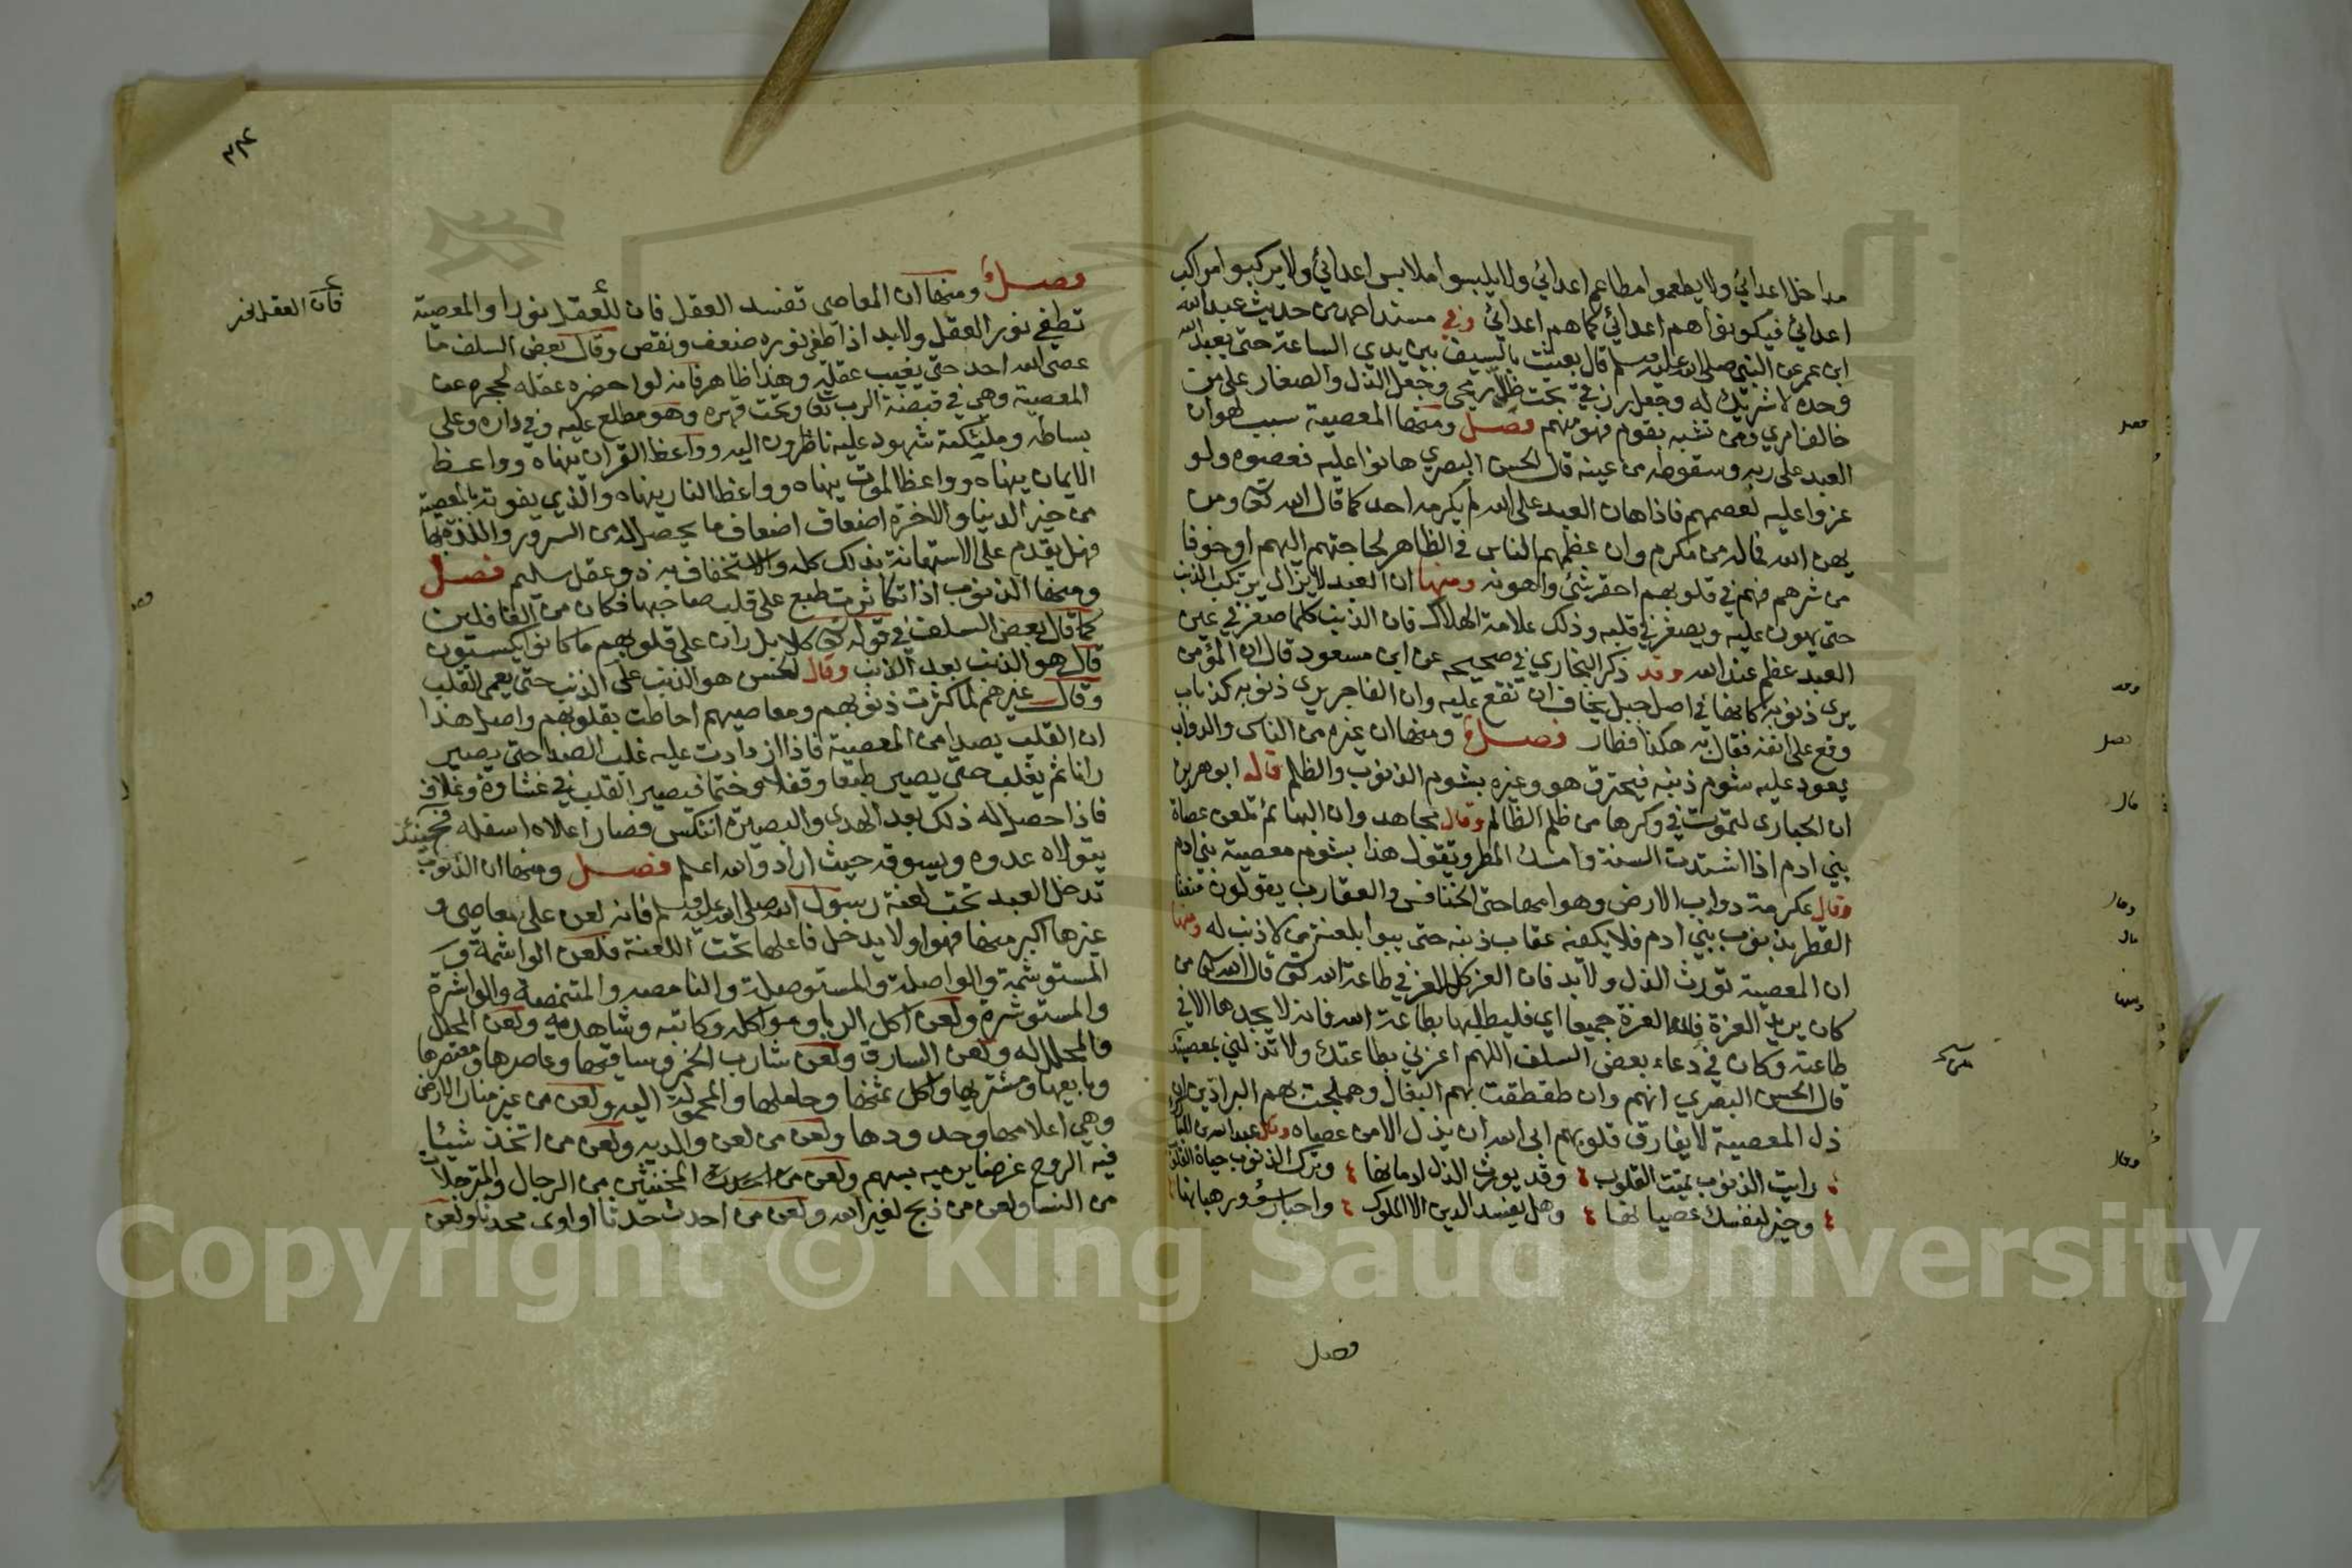 مداخل اعدائي ولا يطعموا مطاعم اعدائي ولا يلبسوا ملابس اعدائي ولا يركبوا مراكب
اعدائي فيكونوا هم اعدائي كما هم اعدائي وفي مسند احمد من حديث عبد الله
ابن عمر عن النبي صلى الله عليه وسلم قال بعثت بالسيف بين يدي الساعة حتى يعبد الله
وحده لا شريك له وجعل رزقي تحت ظل رمحي وجعل الذل والصغار على من
خالف امري ومن تشبه بقوم فهو منهم فصل ومنها المعصية سبب لهوان
العبد على ربه وسقوطه من عينه قال الحسن البصري هانوا عليه فعصوه ولو
عزوا عليه لعصمهم فاذا هان العبد على الله لم يكرمه احد كما قال الله تعالى ومن
يهن الله فما له من مكرم وان عظمهم الناس في الظاهر لحاجتهم اليهم او خوفا
من شرهم فهم في قلوبهم احقر شيئ واهونه ومنها ان العبد لا يزال يرتكب الذنب
حتى يهون عليه ويصغر في قلبه وذلك علامة الهلاك فان الذنب كلما صغر في عين
العبد عظم عند الله وقد ذكر البخاري في صحيحه عن ابن مسعود قال ان المؤمن
يرى ذنوبه كانها في اصل جبل يخاف ان تقع عليه وان الفاجر يرى ذنوبه كذباب
وقع على انفه فقال به هكذا فطار فصل ومنها ان غيره من الناس والدواب
يعود عليه شوم ذنبه فيحترق هو وغيره بشوم الذنوب والظلم قال ابو هريرة
ان الحبارى لتموت في وكرها من ظلم الظالم وقال مجاهد وان البهائم تلعن عصاة
بني ادم اذا اشتدت السنة وامسك المطر وتقول هذا بشوم معصية بني ادم
وقال عكرمة دواب الارض وهوامها حتى الخنافس والعقارب يقولون منعنا
القطر بذنوب بني ادم فلا يكفيه عقاب ذنبه حتى يبوا بلعنة من لا ذنب له ومنها
ان المعصية تورث الذل ولا بد فان العز كل العز في طاعة الله تعالى قال الله تعالى من
كان يريد العزة فلله العزة جميعا اي فليطلبها بطاعة الله فانه لا يجدها الا في
طاعته وكان في دعاء بعض السلف اللهم اعزني بطاعتك ولا تذلني بمعصيتك
قال الحسن البصري انهم وان طقطقت بهم البغال وهملجت بهم البراذين ان
ذل المعصية لا يفارق قلوبهم ابى الله ان يذل الا من عصاه وقال عبد الله بن المبارك
رايت الذنوب تميت القلوب وقد يورث الذل ادمانها وترك الذنوب حياة القلوب
وخير لنفسك عصيانها وهل يفسد الدين الا الملوك واحبار سوء ورهبانها
فصل
فصل ومنها ان المعاصي تفسد العقل فان للعقل نورا والمعصية
تطفي نور العقل ولا بد اذا طفي نوره ضعف ونقص وقال بعض السلف ما
عصى الله احد حتى يغيب عقله وهذا ظاهر فانه لو احضره عقله لحجره عن
المعصية وهي في قبضة الرب تعالى وتحت قهره وهو مطلع عليه وفي داره وعلى
بساطه وملئكته شهود عليه ناظرون اليه وواعظ القران ينهاه وواعظ
الايمان ينهاه وواعظ الموت ينهاه وواعظ النار ينهاه والذي يفوته بالمعصية
من خير الدنيا والاخرة اضعاف اضعاف ما يحصل له من السرور واللذة بها
فهل يقدم على الاستهانة بذلك كله والاستخفاف به ذو عقل سليم فصل
ومنها الذنوب اذا تكاثرت طبع على قلب صاحبها فكان من الغافلين
كما قال بعض السلف في قوله تعالى كلا بل ران على قلوبهم ما كانوا يكسبون
قال هو الذنب بعد الذنب وقال الحسن هو الذنب على الذنب حتى يعمى القلب
وقال غيرهم لما كثرت ذنوبهم ومعاصيهم احاطت بقلوبهم واصل هذا
ان القلب يصدا من المعصية فاذا ازدادت عليه غلب الصدا حتى يصير
رانا ثم يغلب حتى يصير طبعا وقفلا وختما فيصير القلب في غشاوة وغلاف
فاذا حصل له ذلك بعد الهدى والبصيرة انتكس فصار اعلاه اسفله فحينئذ
يتولاه عدوه ويسوقه حيث اراد والله اعلم فصل ومنها ان الذنوب
تدخل العبد تحت لعنة رسول الله صلى الله عليه وسلم فانه لعن على معاصي و
غيرها اكبر منها فهو اولا يدخل فاعلها تحت اللعنة فلعن الواشمة و
المستوشمة والواصلة والمستوصلة والنامصه والمتنمصة والواشرة
والمستوشرة ولعن اكل الربا وموكله وكاتبه وشاهديه ولعن المحلل
والمحلل له ولعن السارق ولعن شارب الخمر وساقيها وعاصرها ومعتصرها
وبايعها ومشتريها واكل ثمنها وحاملها والمحمولة اليه ولعن من غير منار الارض
وهي اعلامها وحدودها ولعن من لعن والديه ولعن من اتخذ شيئا
فيه الروح غرضا يرميه بسهم ولعن المخنثين من الرجال والمترجلات
من النسا ولعن من ذبح لغير الله ولعن من احدث حدثا او اوى محدثا ولعن
فان العقل نخر
Copyright © King Saud University